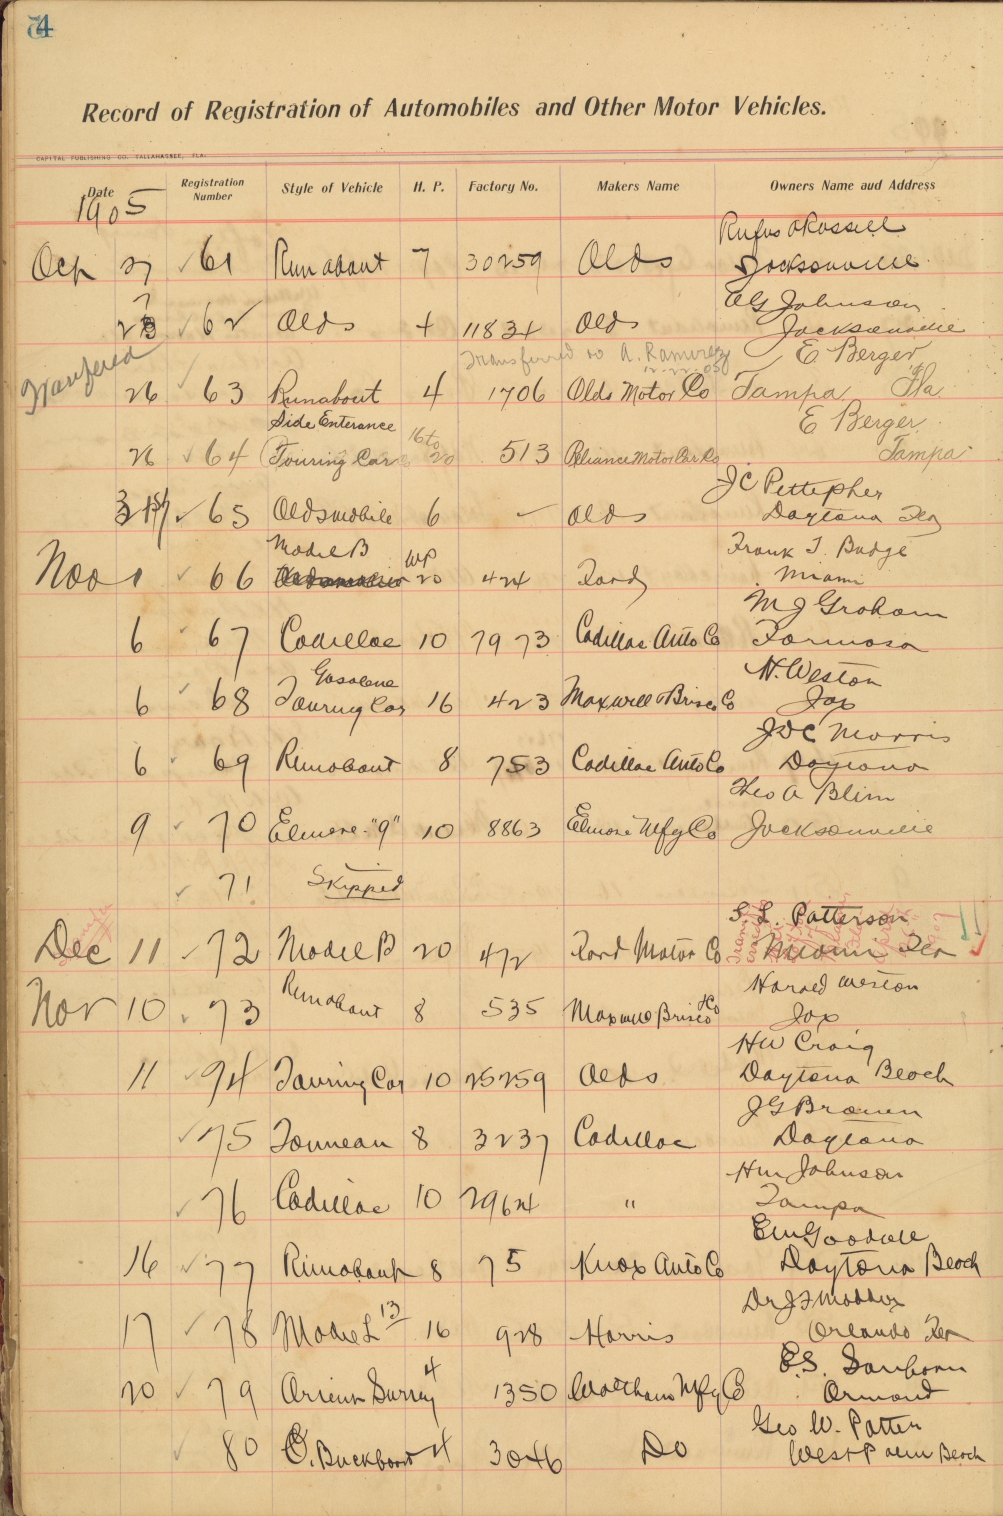 4
Record of Registration of Automobiles and Other Motor Vehicles.
CAPITAL PUBLISHING CO. TALLAHASSEE, FLA.
Date Registration Number Style of Vehicle H. P. Factory No. Makers Name Owners Name and Address
1905
Rufus A Russell
Oct 27 61 Runabout 7 30259 Olds Jacksonville
A G Johnson
27 62 Olds 4 11834 Olds Jacksonville
Transfered Transferred to A. Ramirez E Berger
12-22-05
26 63 Runabout 4 1706 Olds Motor Co Tampa Fla
Side Enterance E Berger
26 64 Touring Car 16 to 20 513 Reliance Motor Car Co Tampa
J C Pettepher
31 65 Oldsmobile 6 Olds Daytona Fla
Model B HP Frank T. Budge
Nov 1 66 20 424 Ford Miami
M J Graham
6 67 Cadillac 10 7973 Cadillac Auto Co Formosa
Gasolene H. Weston
6 68 Touring Car 16 423 Maxwell Brisco Co Jax
J D C Morris
6 69 Runobout 8 753 Cadillac Auto Co Daytona
Theo A Blim
9 70 Elmore "9" 10 8863 Elmore Mfg Co Jacksonville
71 Skipped
S. L. Patterson
Dec 11 72 Model B 20 472 Ford Motor Co Miami Fla
Harold Weston
Nov 10 73 Runobout 8 535 Maxwell Brisco Co Jax
H W Craig
11 74 Touring Car 10 25259 Olds Daytona Beach
J G Brown
75 Tonneau 8 3237 Cadillac Daytona
H M Johnson
76 Cadillac 10 2964 " Tampa
E M Goodall
16 77 Runobout 8 75 Knox Auto Co Daytona Beach
Dr J F
17 78 Model L 13 16 928 Harris Orlando Fla
E. S. Sanborn
20 79 Orient Surrey 4 1350 Waltham Mfg Co Ormond
Geo W. Potter
80 O. Buckboard 4 3046 Do West Palm Beach